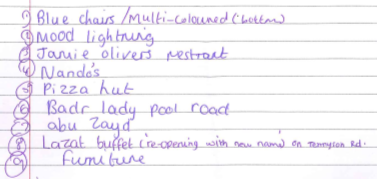 ① Blue chairs / Multi-coloured (bottom)
② Mood lightning
③ Jamie olivers restrant
④ Nando's
⑤ Pizza hut
⑥ Badr lady pool road
⑦ abu Zayd
⑧ Lazat buffet (re-opening with new name on Tennyson Rd.
⑨ furniture